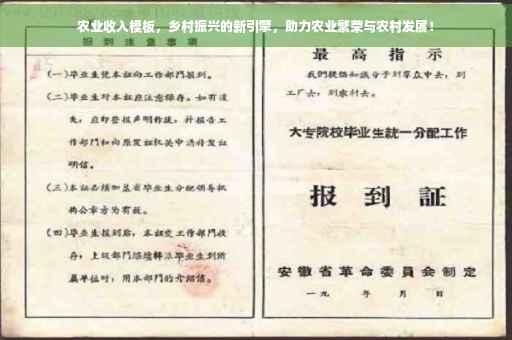 农业收入模板，乡村振兴的新引擎，助力农业繁荣与农村发展！
报到注意事项
(一)毕业生凭本证向工作部门报到。
(二)毕业生对本证应注意保存。如有遗
失，应即登报声明作废，并报告工
作部门和向原发证机关申请补发证
明信。
(三)本证必须加盖省毕业生分配领导机
构公章方为有效。
(四)毕业生报到后，本证交工作部门收
存；上级部门继续转派毕业生到所
属单位时，用本部门的介绍信。
最高指示
我们提倡知识分子到群众中去，到
工厂去，到农村去。
大专院校毕业生统一分配工作
报到証
安徽省革命委員会制定
一九 年 月 日